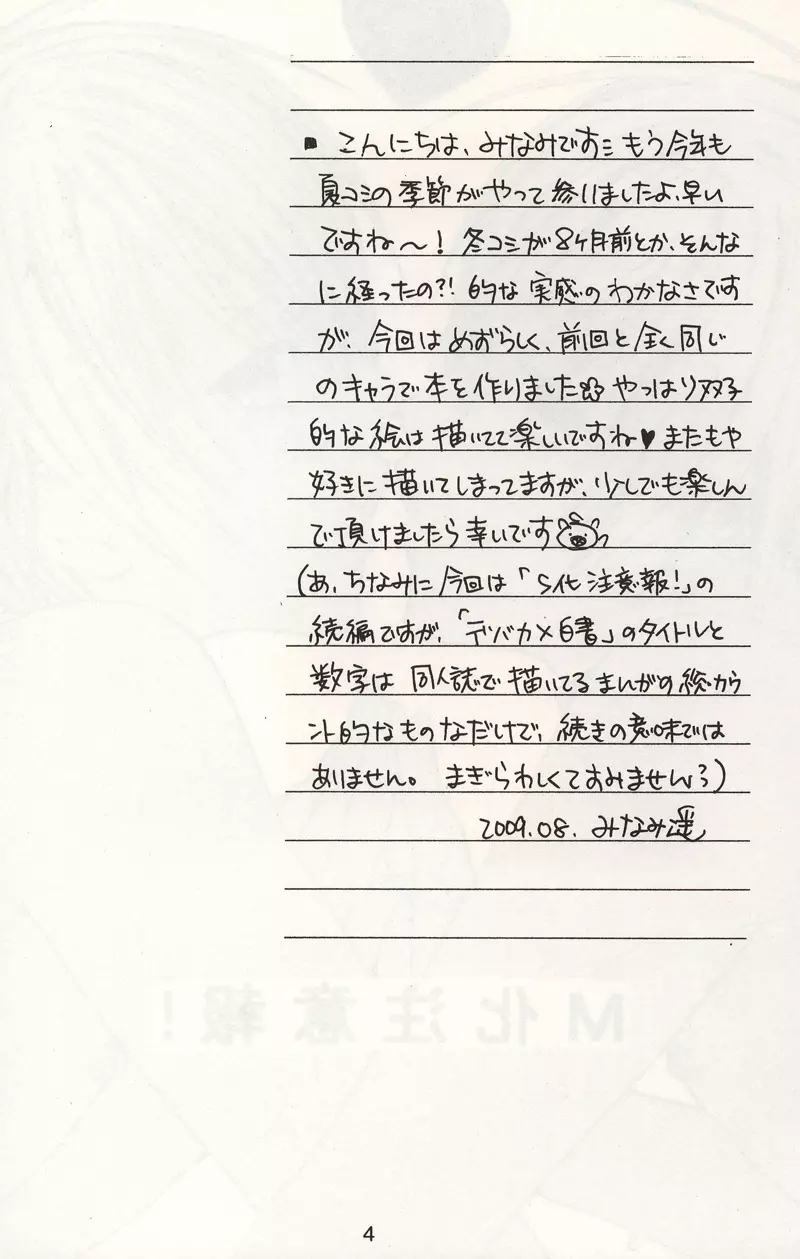 ■ こんにちは、みなみですミ もう今年も
夏コミの季節がやって参りましたよ、早い
ですね〜！ 冬コミが8ヶ月前とか、そんな
に経ったの?! 的な実感のわかなさです
が、今回はめずらしく、前回と全く同じ
のキャラで本を作りました やっぱり双子
的な絵は描いてて楽しいですね♥ またもや
好きに描いてしまってますが、少しでも楽しん
で頂けましたら幸いです
(あ、ちなみに今回は「S化注意報!」の
続編ですが、「デバカメ白書」のタイトルと
数字は同人誌で描いてるまんがの総カウ
ント的なものなだけで、続きの意味では
ありません。 まぎらわしくてすみません)
2009.08. みなみ遥
M化注意報!
4